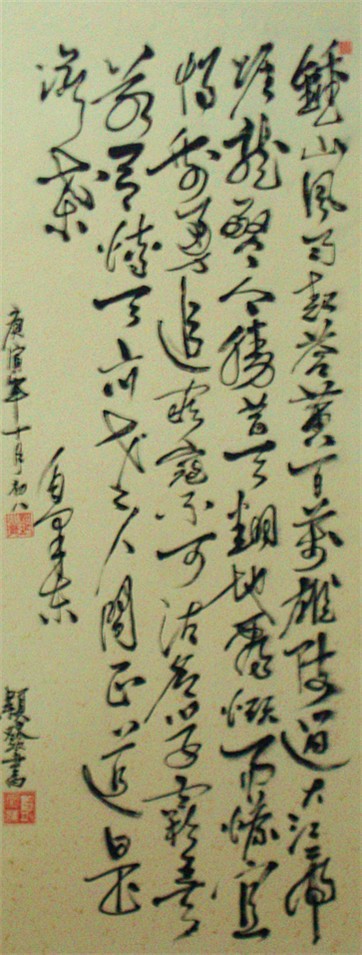 鍾山風雨起蒼黃百萬雄師過大江虎
踞龍盤今勝昔天翻地覆慨而慷宜
將剩勇追窮寇不可沽名學霸王天
若有情天亦老人間正道是
滄桑
毛澤東
庚寅年十月初八
書